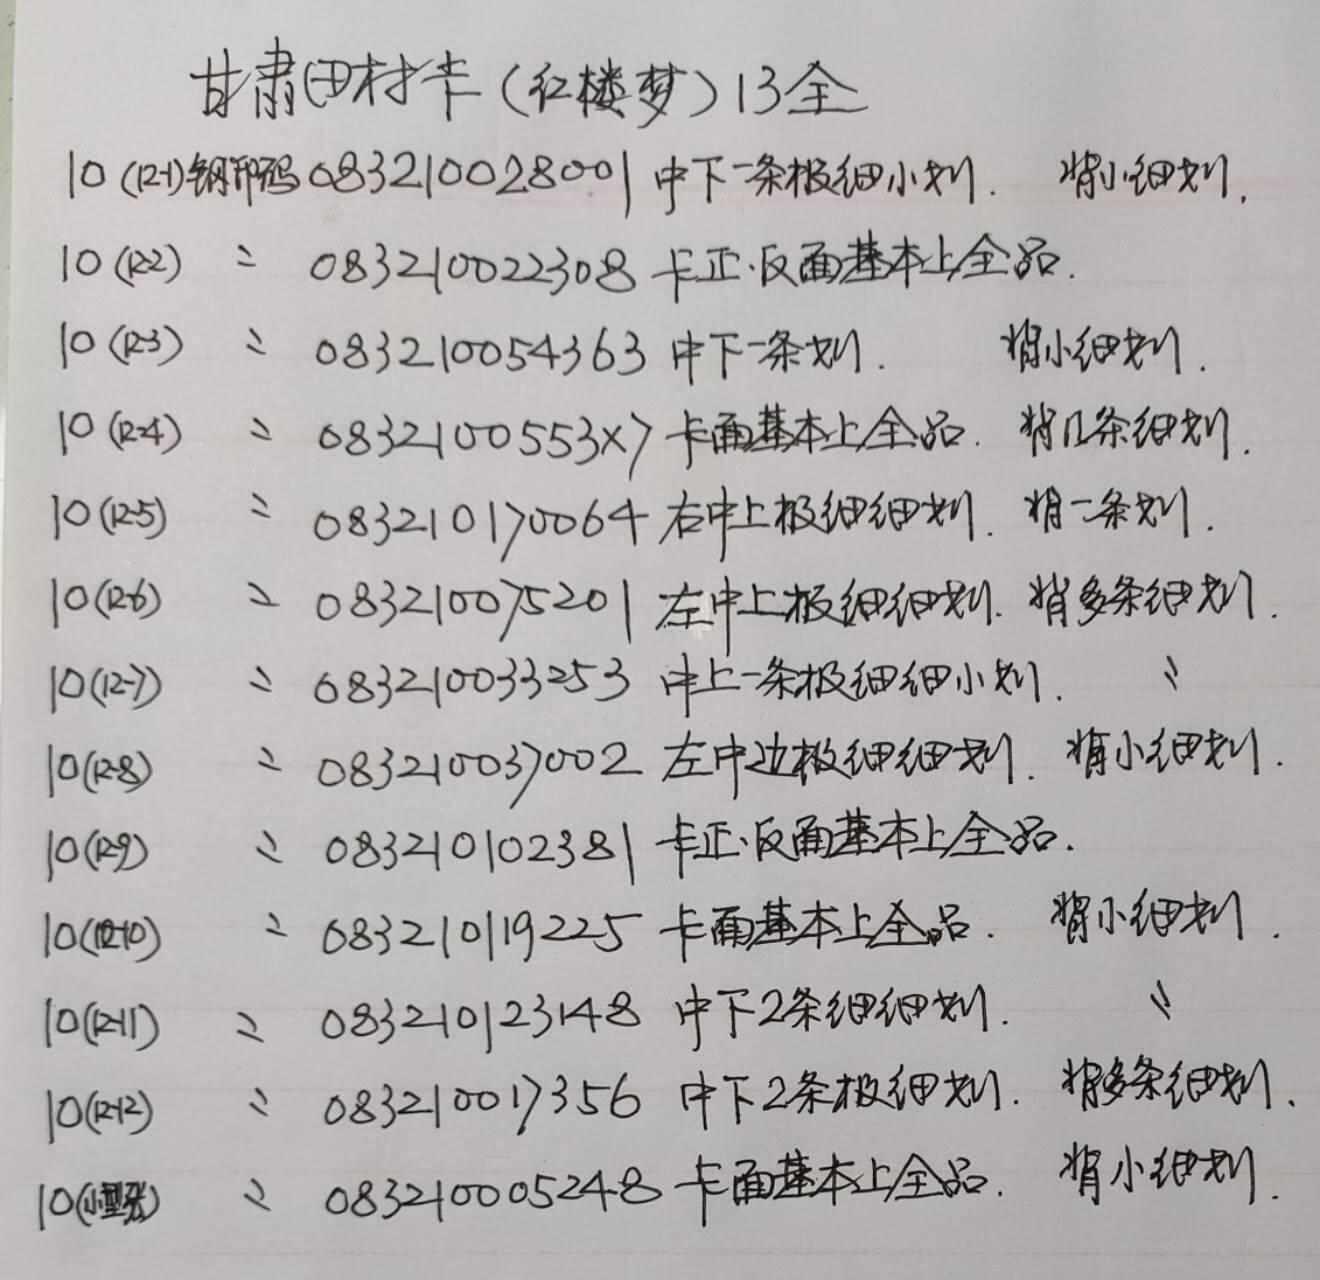 甘肃田村卡（红楼梦）13全
10（12-1）钢印码 083210028001 中下一条极细小划. 背小细划.
10（12-2） 〃 083210022308 卡正.反面基本上全品.
10（12-3） 〃 083210054363 中下一条划. 背小细划.
10（12-4） 〃 0832100553X7 卡面基本上全品. 背几条细划.
10（12-5） 〃 083210170064 右中上极细细划. 背一条划.
10（12-6） 〃 083210075201 左中上极细细划. 背多条细划.
10（12-7） 〃 083210033253 中上一条极细细小划. 〃
10（12-8） 〃 083210037002 左中边极细细划. 背小细划.
10（12-9） 〃 083210102381 卡正.反面基本上全品.
10（12-10） 〃 083210119225 卡面基本上全品. 背小细划.
10（12-11） 〃 083210123148 中下2条细细划. 〃
10（12-12） 〃 083210017356 中下2条极细划. 背多条细划.
10（小型张） 〃 083210005248 卡面基本上全品. 背小细划.